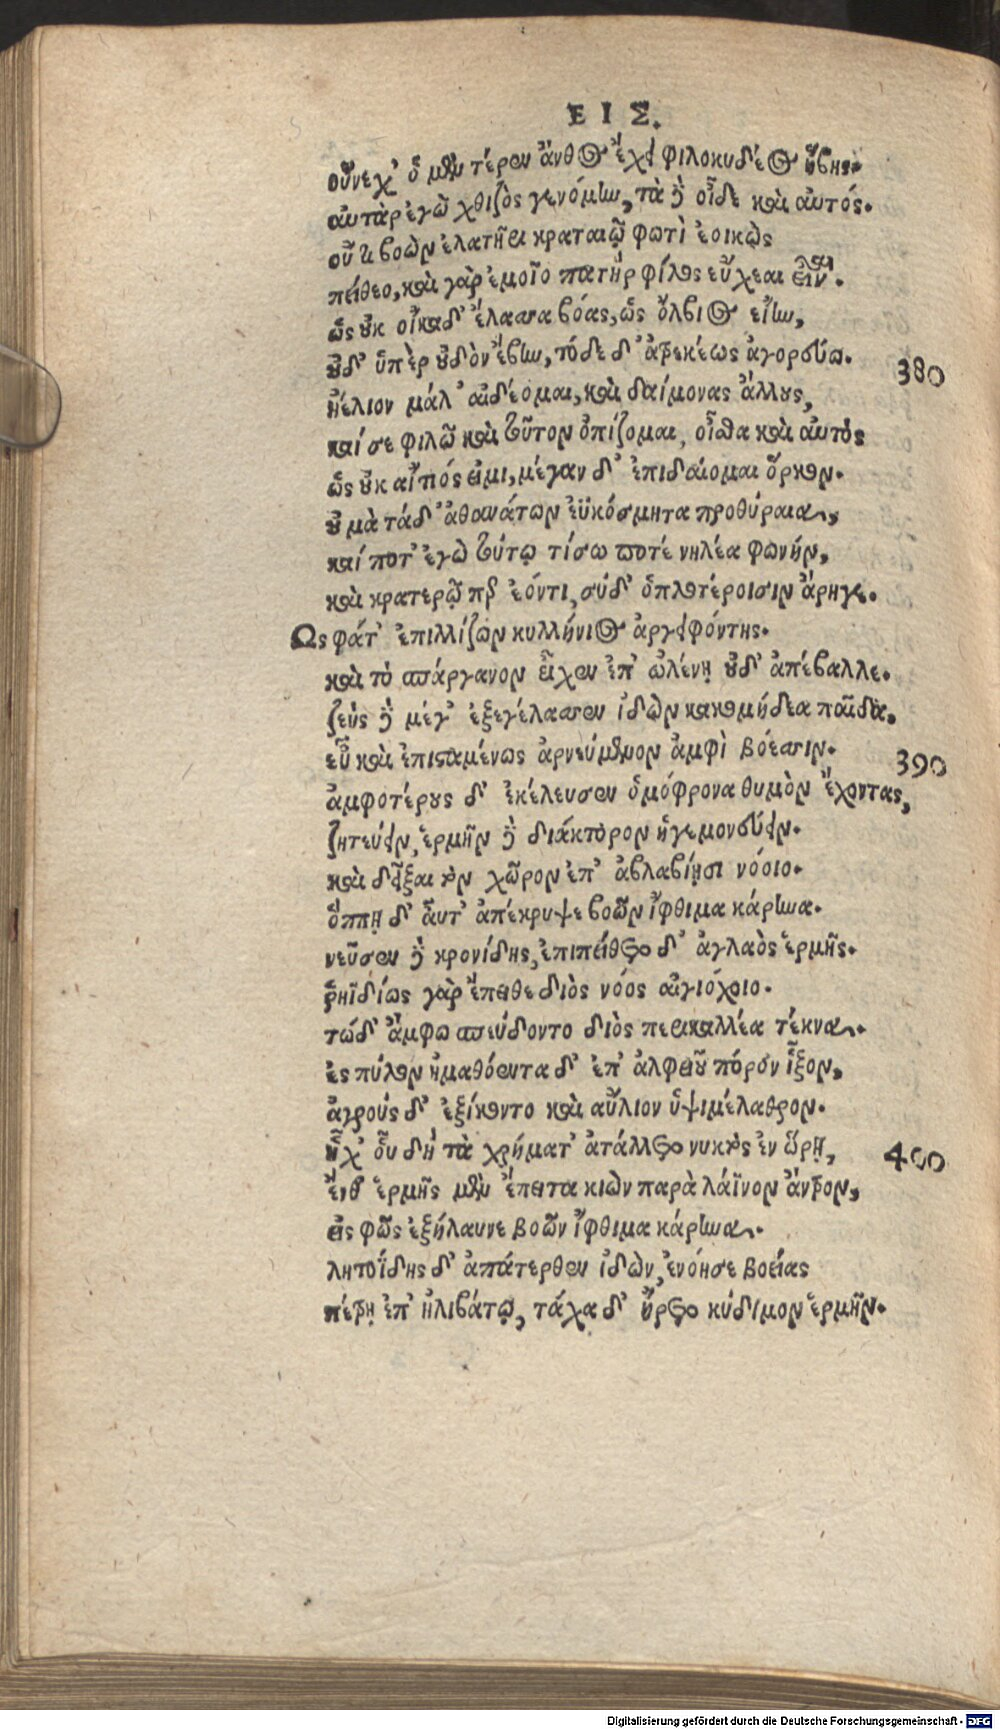 ΕΙΣ.
οὕνεχ’ ὃ μὲν τέρεν ἄνθος ἔχει φιλοκυδέος ἥβης·
αὐτὰρ ἐγὼ χθιζὸς γενόμην, τὰ δὲ οἶδε καὶ αὐτός.
οὔτι βοῶν ἐλατῆρι κραταιῷ φωτὶ ἐοικὼς
πείθεο, καὶ γὰρ ἐμοῖο πατὴρ φίλος εὔχεαι εἶναι.
ὣς οὐκ οἴκαδ’ ἔλασσα βόας, ὣς ὄλβιος εἴην,
οὐδ’ ὑπὲρ οὐδὸν ἔβην, τόδε δ’ ἀτρεκέως ἀγορεύω.
380
ἠέλιον μάλ’ αἰδέομαι, καὶ δαίμονας ἄλλους,
καί σε φιλῶ καὶ τοῦτον ὀπίζομαι, οἶσθα καὶ αὐτὸς
ὡς οὐκ αἴτιός εἰμι, μέγαν δ’ ἐπιδαίομαι ὅρκον.
οὐ μὰ τάδ’ ἀθανάτων ἐϋκόσμητα προθύραια,
καί ποτ’ ἐγὼ τούτῳ τίσω ποτὲ νηλέα φωνήν,
καὶ κρατερῷ περ ἐόντι, σὺ δ’ ὁπλοτέροισιν ἄρηγε.
Ως φάτ’ ἐπιλλίζων κυλλήνιος ἀργειφόντης.
καὶ τὸ σπάργανον εἶχεν ἐπ’ ὠλένῃ οὐδ’ ἀπέβαλλε.
ζεὺς δὲ μέγ’ ἐξεγέλασσεν ἰδὼν κακομήδεα παῖδα,
εὖ καὶ ἐπισταμένως ἀρνεύμενον ἀμφὶ βόεσσιν.
390
ἀμφοτέρους δ’ ἐκέλευσεν ὁμόφρονα θυμὸν ἔχοντας,
ζητεύειν, ἑρμῆν δὲ διάκτορον ἡγεμονεύειν.
καὶ δεῖξαι τὸν χῶρον ἐπ’ ἀβλαβίῃσι νόοιο.
ὅππῃ δ’ αὖτ’ ἀπέκρυψε βοῶν ἴφθιμα κάρηνα.
νεῦσεν δὲ κρονίδης, ἐπιπείθετο δ’ ἀγλαὸς ἑρμῆς.
ῥηϊδίως γὰρ ἔπειθε διὸς νόος αἰγιόχοιο.
τώδ’ ἄμφω σπεύδοντο διὸς περικαλλέα τέκνα.
ἐς πύλον ἠμαθόεντα δ’ ἐπ’ ἀλφειοῦ πόρον ἷξον,
ἀγροὺς δ’ ἐξίκοντο καὶ αὔλιον ὑψιμέλαθρον.
ἧχ’ οὗ δὴ τὰ χρήματ’ ἀτάλλετο νυκτὸς ἐν ὥρῃ,
400
ἔνθ’ ἑρμῆς μὲν ἔπειτα κιὼν παρὰ λάϊνον ἄντρον,
εἰς φῶς ἐξήλαυνε βοῶν ἴφθιμα κάρηνα.
λητοΐδης δ’ ἀπάτερθεν ἰδὼν, ἐνόησε βοείας
πέτρῃ ἐπ’ ἠλιβάτῳ, τάχα δ’ ἤρετο κύδιμον ἑρμῆν.
Digitalisierung gefördert durch die Deutsche Forschungsgemeinschaft - DFG